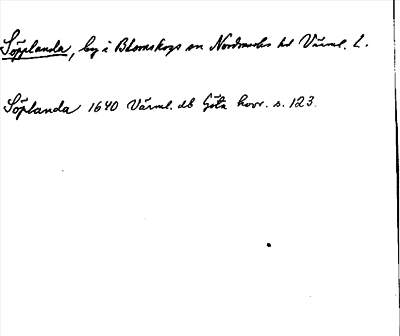 Söpplanda, by i Blomskogs sn Nordmarks hd Värml. L.
Söplanda 1640 Värml. db Göta hovr. s. 123.